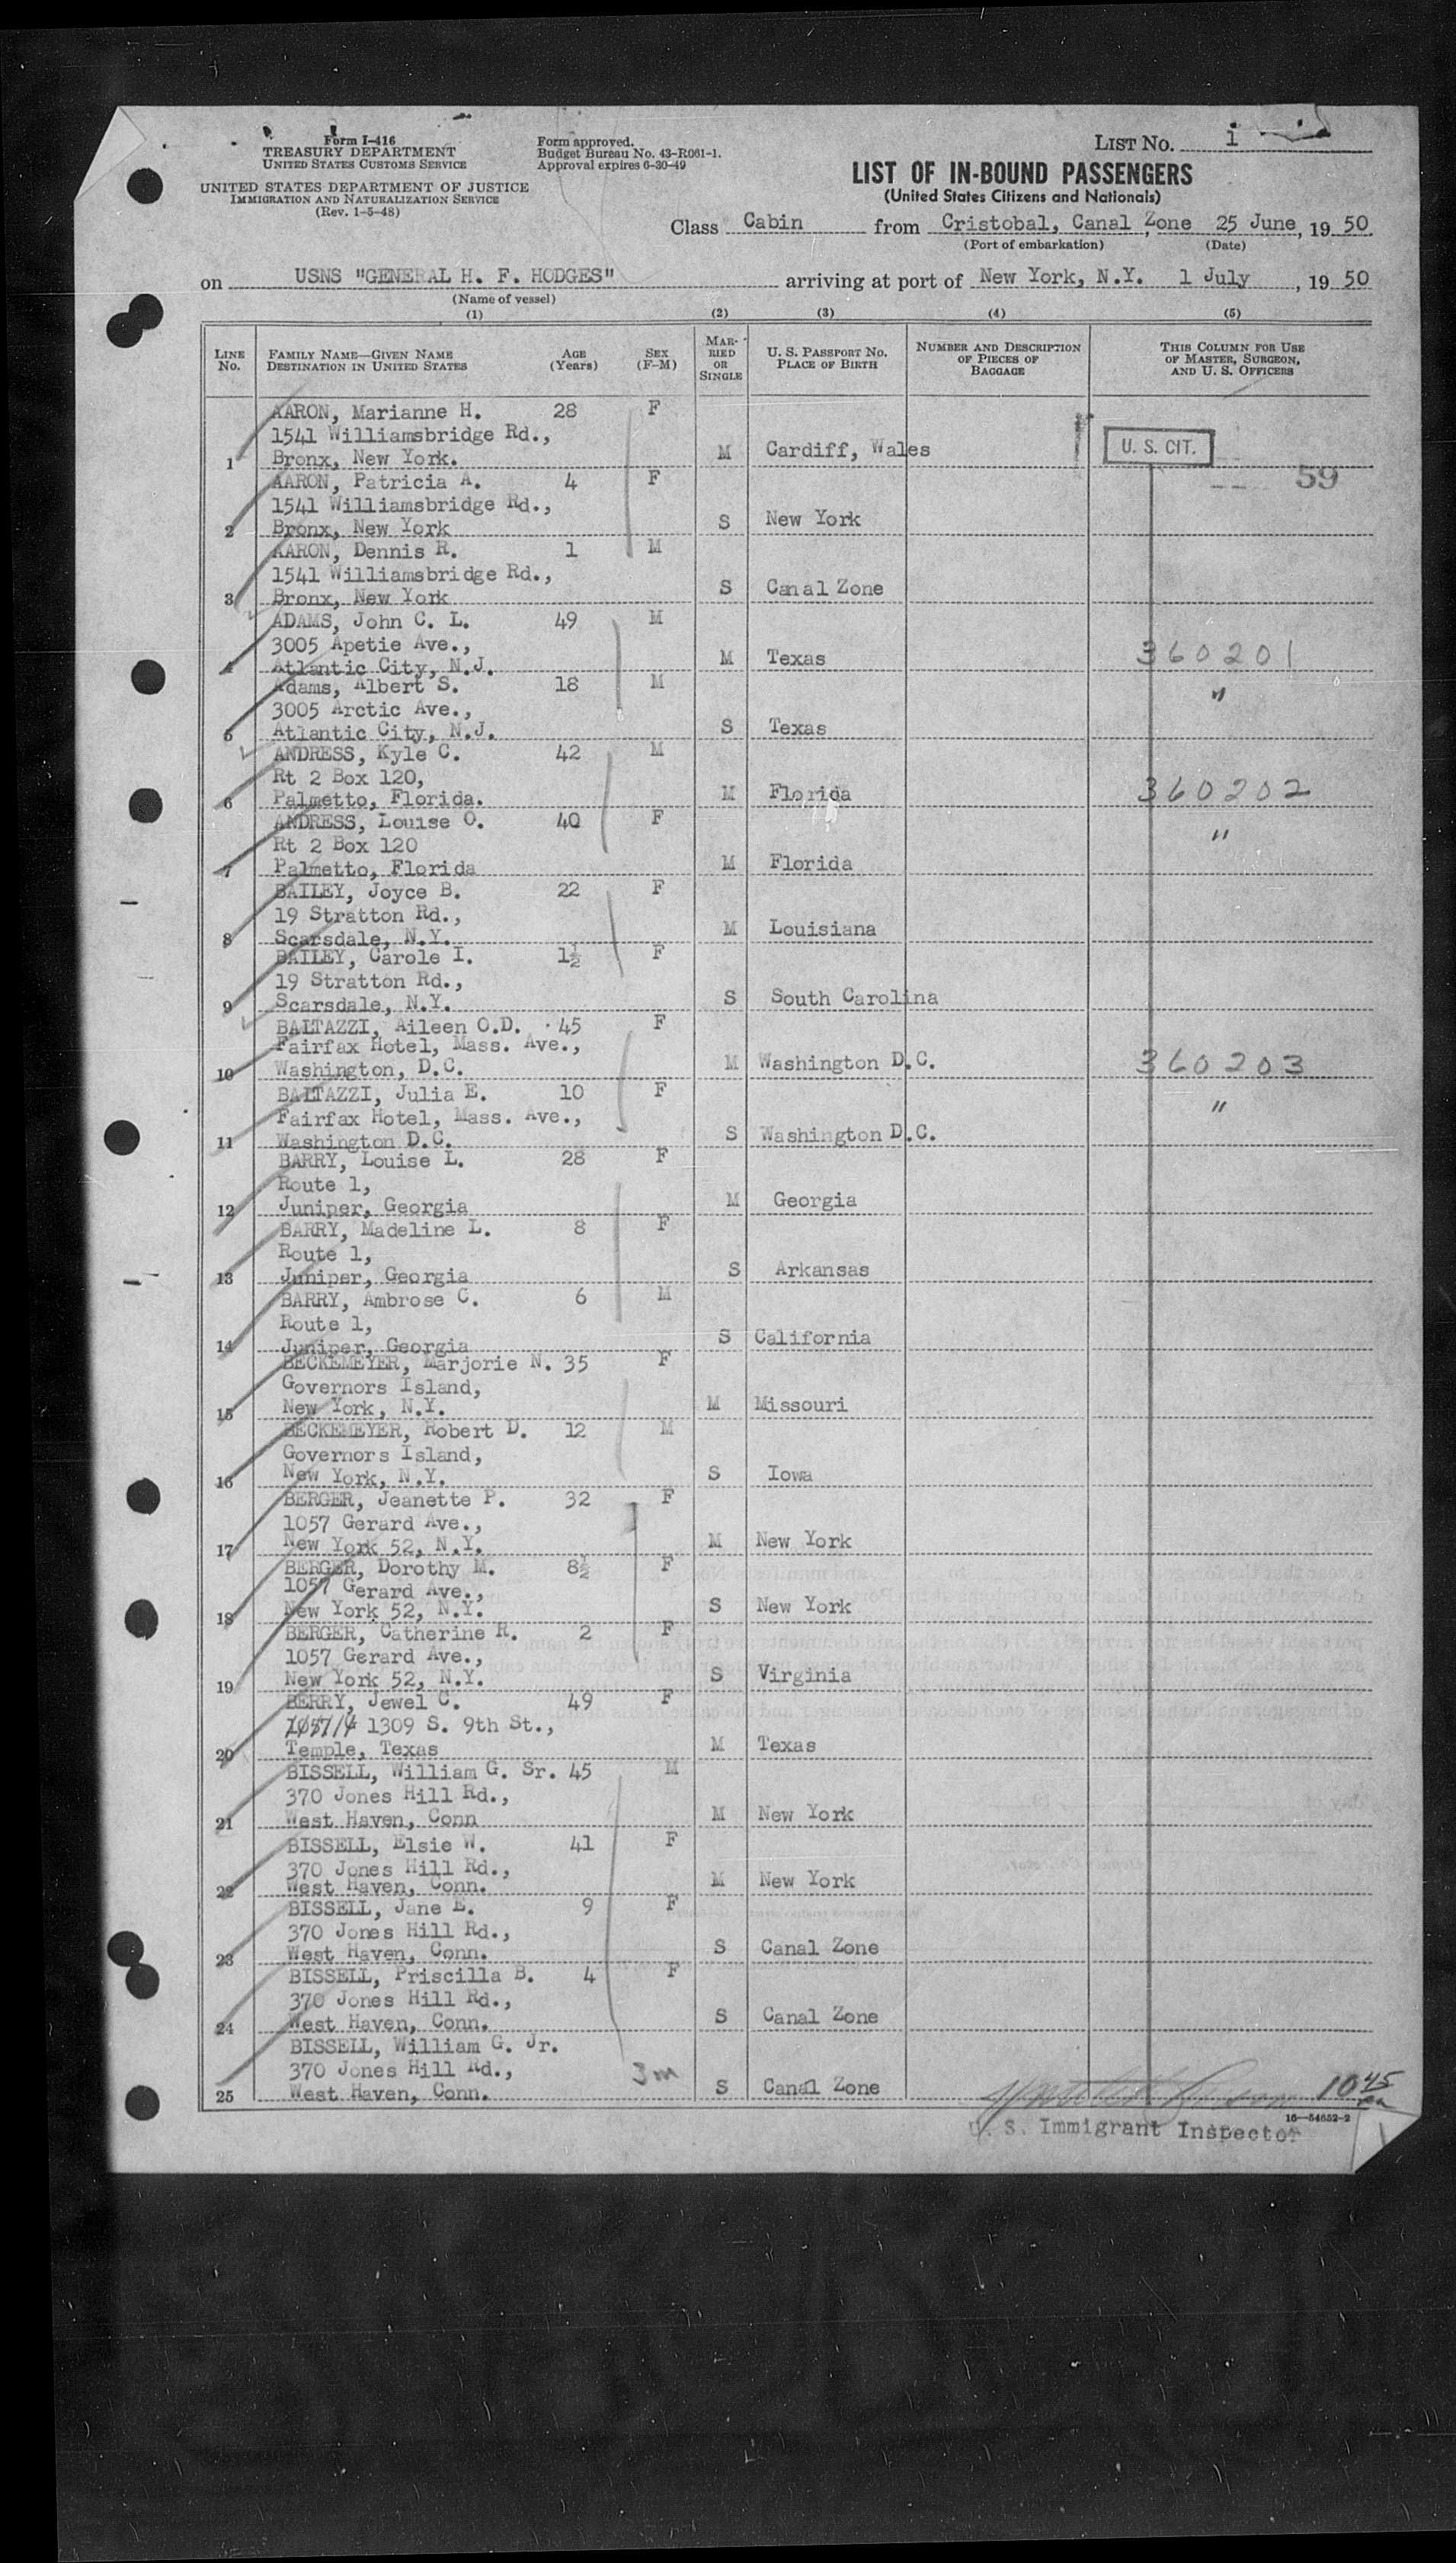 Form I-416
TREASURY DEPARTMENT
UNITED STATES CUSTOMS SERVICE
UNITED STATES DEPARTMENT OF JUSTICE
IMMIGRATION AND NATURALIZATION SERVICE
(Rev. 1-5-48)
Form approved.
Budget Bureau No. 43-R061-1.
Approval expires 6-30-49
LIST No. 1
LIST OF IN-BOUND PASSENGERS
(United States Citizens and Nationals)
Class Cabin from Cristobal, Canal Zone, 25 June, 19 50.
(Port of embarkation) (Date)
on USNS "GENERAL H. F. HODGES" arriving at port of New York, N.Y. 1 July, 19 50
(Name of vessel)
(1) (2) (3) (4) (5)
LINE No. FAMILY NAME—GIVEN NAME DESTINATION IN UNITED STATES AGE (Years) SEX (F-M) MARRIED OR SINGLE U. S. PASSPORT No. PLACE OF BIRTH NUMBER AND DESCRIPTION OF PIECES OF BAGGAGE THIS COLUMN FOR USE OF MASTER, SURGEON, AND U. S. OFFICERS
AARON, Marianne H. 28 F
1541 Williamsbridge Rd.,
1 Bronx, New York. M Cardiff, Wales U. S. CIT.
59
AARON, Patricia A. 4 F
1541 Williamsbridge Rd.,
2 Bronx, New York S New York
AARON, Dennis R. 1 M
1541 Williamsbridge Rd.,
3 Bronx, New York S Canal Zone
ADAMS, John C. L. 49 M
3005 Apetie Ave.,
4 Atlantic City, N.J. M Texas 360201
Adams, Albert S. 18 M "
3005 Arctic Ave.,
5 Atlantic City, N.J. S Texas
ANDRESS, Kyle C. 42 M
Rt 2 Box 120,
6 Palmetto, Florida. M Florida 360202
ANDRESS, Louise O. 40 F "
Rt 2 Box 120
7 Palmetto, Florida M Florida
BAILEY, Joyce B. 22 F
19 Stratton Rd.,
8 Scarsdale, N.Y. M Louisiana
BAILEY, Carole I. 1½ F
19 Stratton Rd.,
9 Scarsdale, N.Y. S South Carolina
BALTAZZI, Aileen O.D. 45 F
Fairfax Hotel, Mass. Ave.,
10 Washington, D.C. M Washington D.C. 360203
BALTAZZI, Julia E. 10 F "
Fairfax Hotel, Mass. Ave.,
11 Washington D.C. S Washington D.C.
BARRY, Louise L. 28 F
Route 1,
12 Juniper, Georgia M Georgia
BARRY, Madeline L. 8 F
Route 1,
13 Juniper, Georgia S Arkansas
BARRY, Ambrose C. 6 M
Route 1,
14 Juniper, Georgia S California
BECKEMEYER, Marjorie N. 35 F
Governors Island,
15 New York, N.Y. M Missouri
BECKEMEYER, Robert D. 12 M
Governors Island,
16 New York, N.Y. S Iowa
BERGER, Jeanette P. 32 F
1057 Gerard Ave.,
17 New York 52, N.Y. M New York
BERGER, Dorothy M. 8½ F
1057 Gerard Ave.,
18 New York 52, N.Y. S New York
BERGER, Catherine R. 2 F
1057 Gerard Ave.,
19 New York 52, N.Y. S Virginia
BERRY, Jewel C. 49 F
1309 S. 9th St.,
20 Temple, Texas M Texas
BISSELL, William G. Sr. 45 M
370 Jones Hill Rd.,
21 West Haven, Conn M New York
BISSELL, Elsie W. 41 F
370 Jones Hill Rd.,
22 West Haven, Conn. M New York
BISSELL, Jane E. 9 F
370 Jones Hill Rd.,
23 West Haven, Conn. S Canal Zone
BISSELL, Priscilla B. 4 F
370 Jones Hill Rd.,
24 West Haven, Conn. S Canal Zone
BISSELL, William G. Jr.
370 Jones Hill Rd., 3m
25 West Haven, Conn. S Canal Zone 10 45
16—54652-2
U. S. Immigrant Inspector